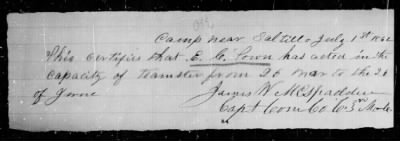 Camp near Saltillo July 1st 1862
This certifies that E. C. Town has acted in the
capacity of Teamster from 26 Mar to the 26
of June
James W McSpadden
Capt Com Co C 3rd